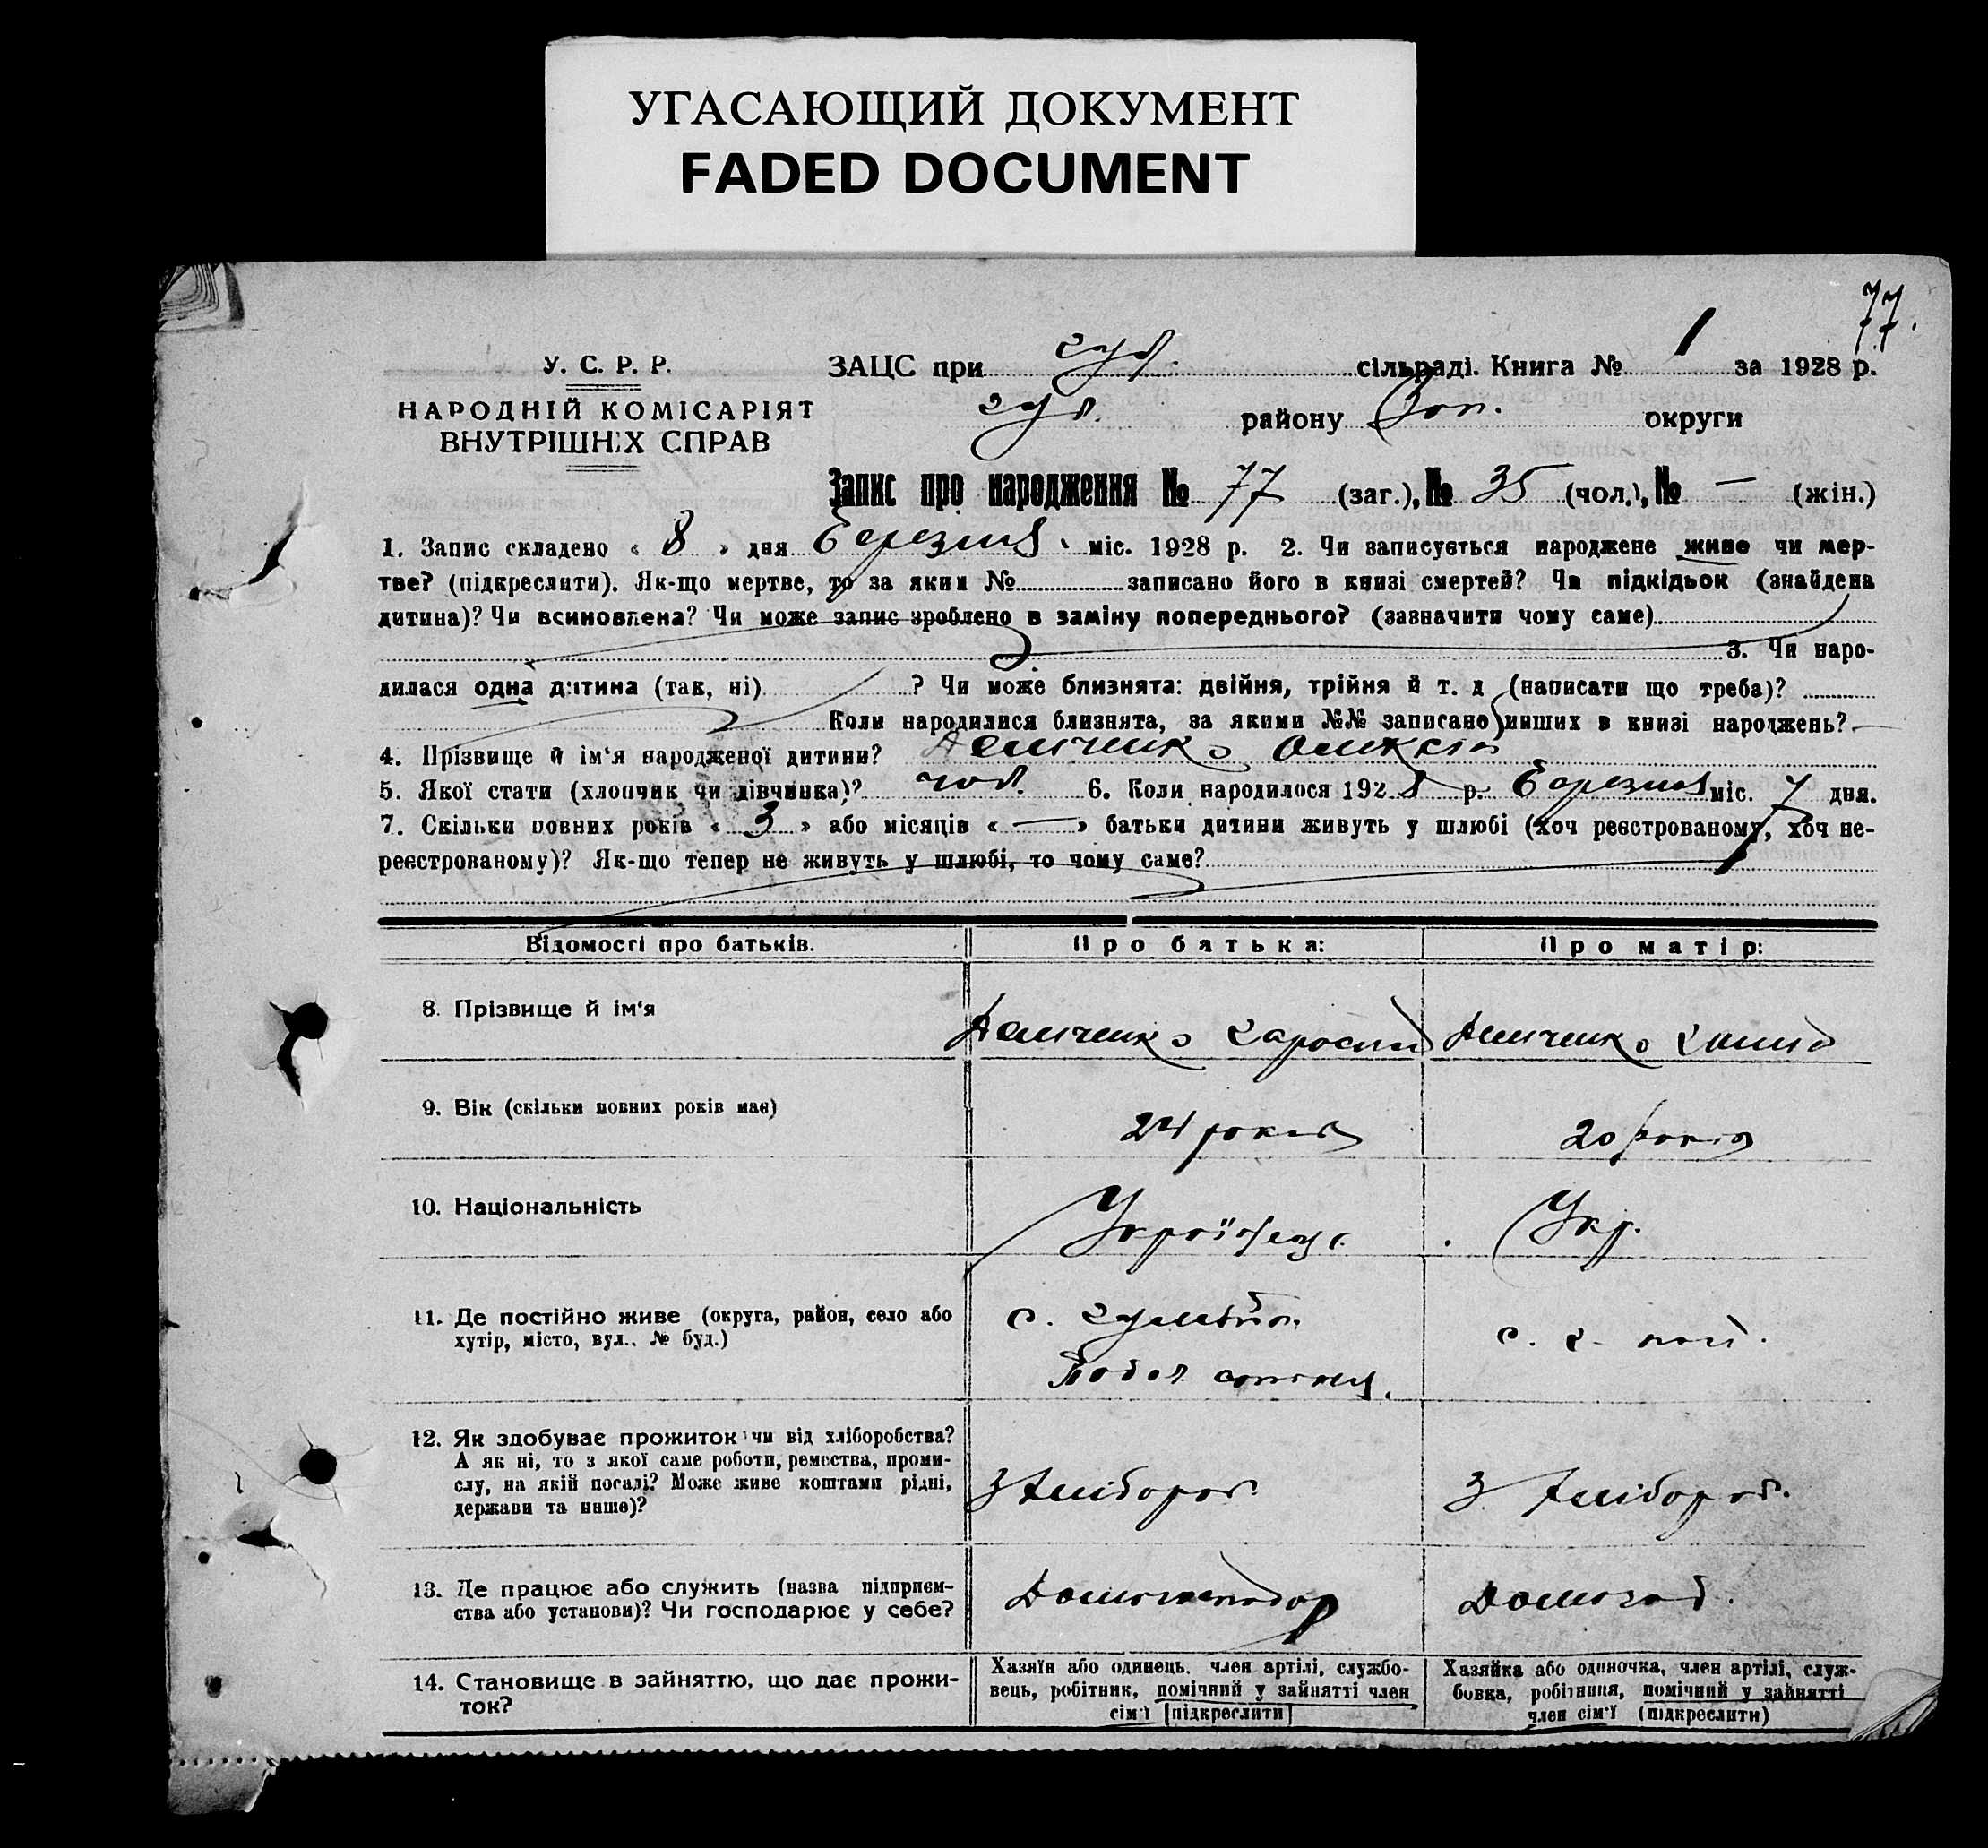 УГАСАЮЩИЙ ДОКУМЕНТ
FADED DOCUMENT
77.
У. С. Р. Р.
НАРОДНІЙ КОМІСАРІЯТ
ВНУТРІШНІХ СПРАВ
ЗАЦС при сільраді. Книга № 1 за 1928 р.
району Зап. округи
Запис про народження № 77 (заг.), № 35 (чол.), № — (жін.)
1. Запис складено « 8 » дня Березня міс. 1928 р. 2. Чи записується народжене живе чи мер-
тве? (підкреслити). Як-що мертве, то за яким № записано його в книзі смертей? Чи підкідьок (знайдена
дитина)? Чи всиновлена? Чи може запис зроблено в заміну попереднього? (зазначити чому саме)
3. Чи наро-
дилася одна дитина (так, ні) ? Чи може близнята: двійня, трійня й т. д (написати що треба)?
Коли народилися близнята, за якими №№ записано инших в книзі народжень? —
4. Прізвище й ім‘я народженої дитини?
5. Якої стати (хлопчик чи дівчинка)? чол. 6. Коли народилося 1928 р. Березня міс. 7 дня.
7. Скільки повних років « 3 » або місяців « — » батьки дитини живуть у шлюбі (хоч реєстрованому, хоч не-
реєстрованому)? Як-що тепер не живуть у шлюбі, то чому саме?
Відомості про батьків. Про батька: Про матір:
8. Прізвище й ім‘я
9. Вік (скільки повних років має) 24 років 20 років
10. Національність Українець Укр.
11. Де постійно живе (округа, район, село або
хутір, місто, вул.. № буд.)
с.
с.
12. Як здобуває прожиток чи від хліборобства?
А як ні, то з якої саме роботи, ремества, проми-
слу, на якій посаді? Може живе коштами рідні,
держави та инше)?
З хлібороб. З хлібороб.
13. Де працює або служить (назва підприєм-
ства або установи)? Чи господарює у себе?
Домогосподар Домогос.
14. Становище в зайняттю, що дає прожи-
ток?
Хазяїн або одинець. член артілі, службо-
вець, робітник, помічний у зайнятті член
сім‘ї [підкреслити]
Хазяйка або одиночка, член артілі, служ-
бовка, робітниця, помічний у зайнятті
член сім‘ї (підкреслити)